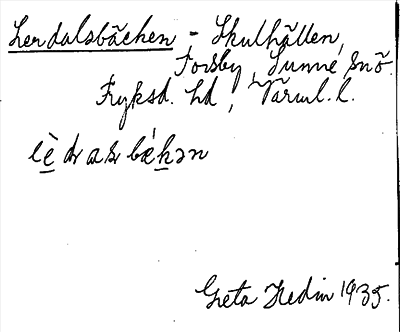 Lerdalsbäcken - Skulhällen,
Forsby, Sunne snö.
Fryksd. hd, Värml. l.
lèdasbékən
Greta Hedin 1935.